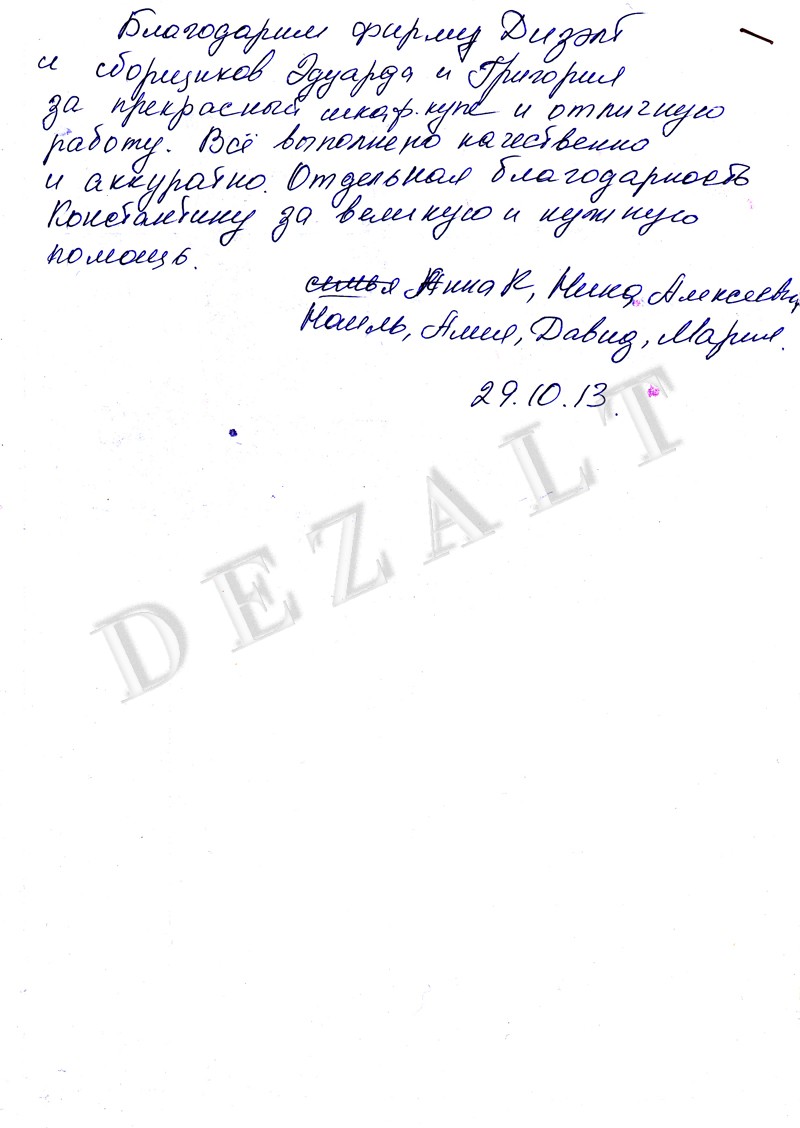 Благодарим фирму Дизэлт
и сборщиков Эдуарда и Григория
за прекрасный шкаф-купе и отличную
работу. Всё выполнено качественно
и аккуратно. Отдельная благодарность
Константину за великую и нужную
помощь.
семья Анна К, Нина Алексеевна,
Наиль, Амия, Давид, Мария.
29.10.13.
DEZALT